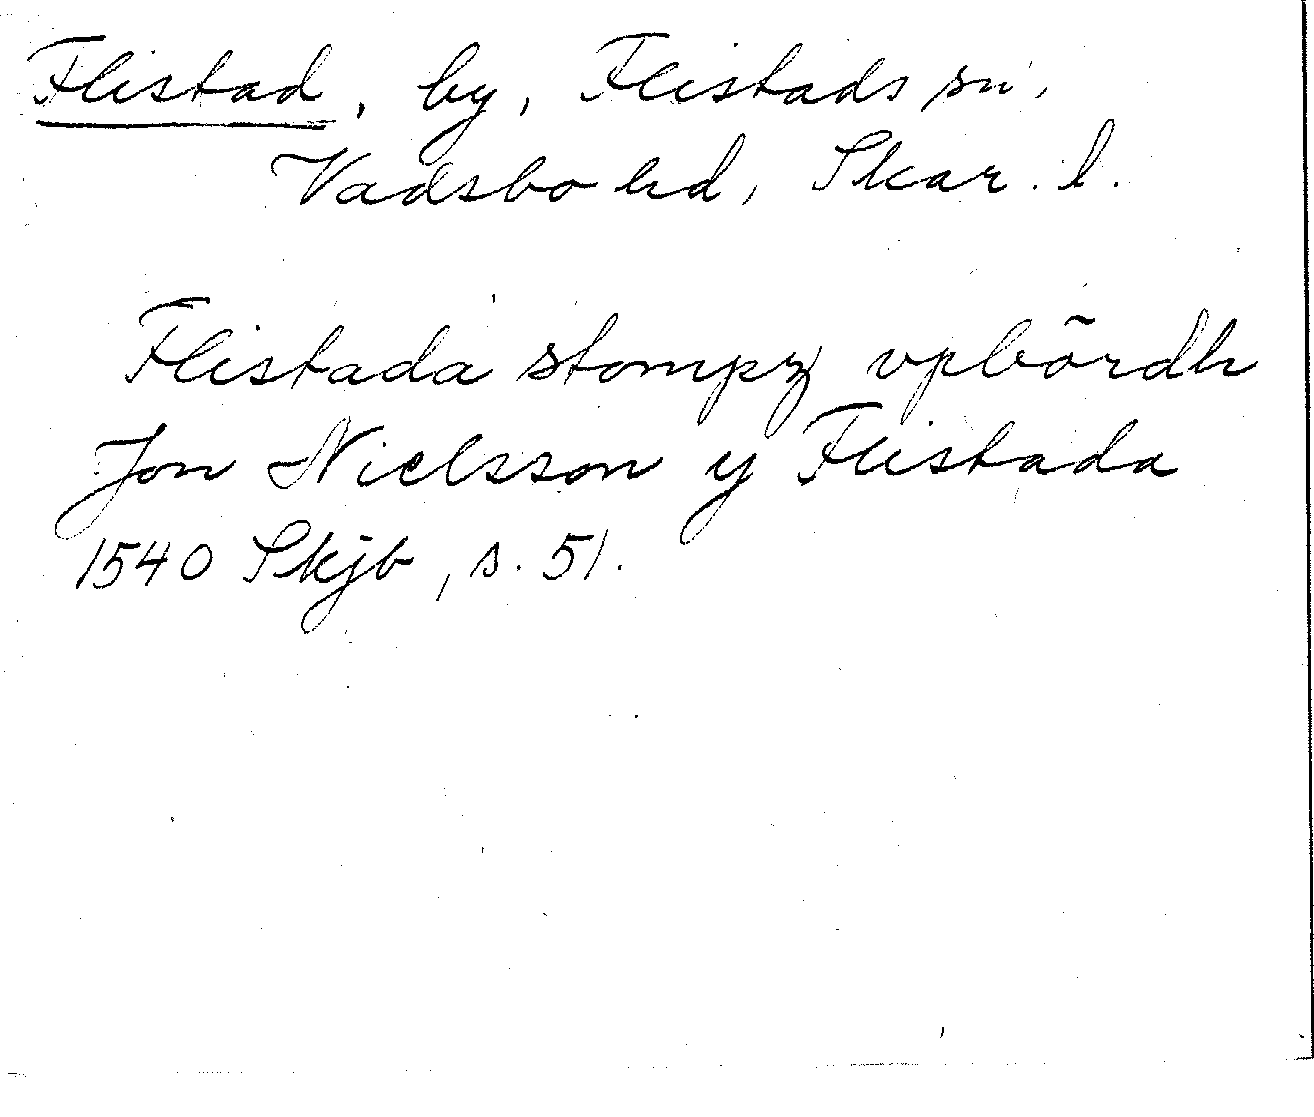 Flistad, by, Flistads sn,
Vadsbo hd, Skar. l.
Flistada stompz vpbördh
Jon Nielsson y Flistada
1540 Skjb, s. 51.